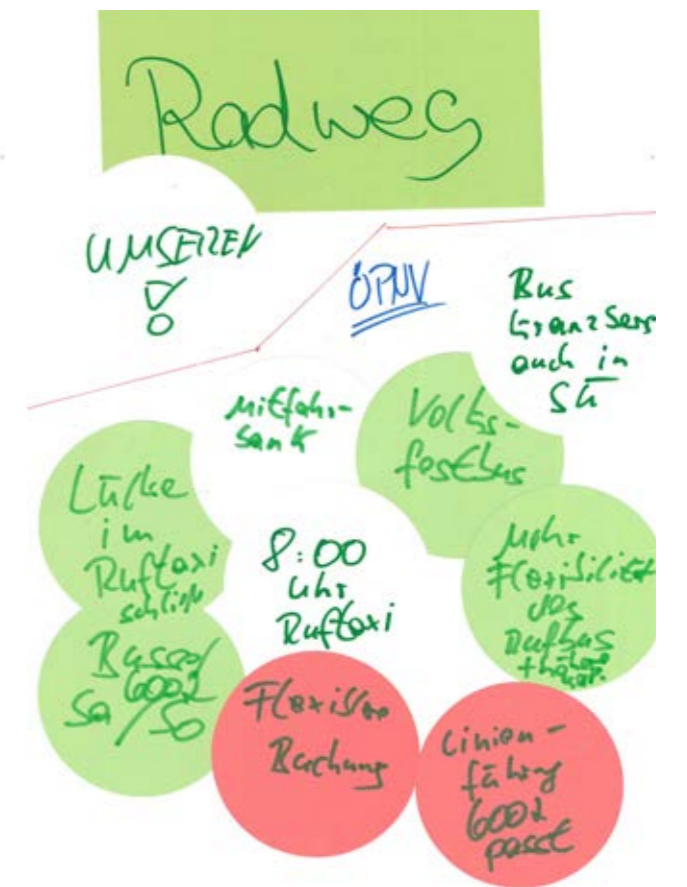 Radweg
UMSETZEN
!
ÖPNV
Bus
auch in
Mitfahr-
bank
Volks-
festbus
Lücke
im
Ruftaxi
schließ
8:00
Uhr
Ruftaxi
Mehr
Flexibilität
des
Rufbus
Busse/
6002
Sa/So
Flexible
Buchung
Linien-
führung
6002
passt